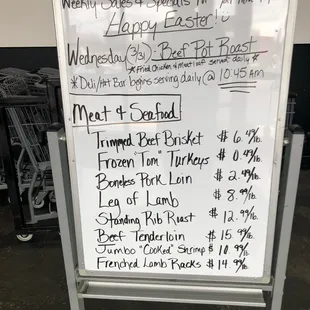 Weekly Sales & Specials
Happy Easter!
Wednesday (3/31) - Beef Pot Roast
*Fried Chicken & meatloaf served daily*
*Deli/Hot Bar begins serving daily @ 10:45 am
Meat & Seafood
Trimmed Beef Brisket $6.49/lb.
Frozen "Tom" Turkeys $0.49/lb.
Boneless Pork Loin $2.49/lb.
Leg of Lamb $8.99/lb.
Standing Rib Roast $12.99/lb.
Beef Tenderloin $15.99/lb.
Jumbo "Cooked" Shrimp $10.99/lb.
Frenched Lamb Racks $14.99/lb.